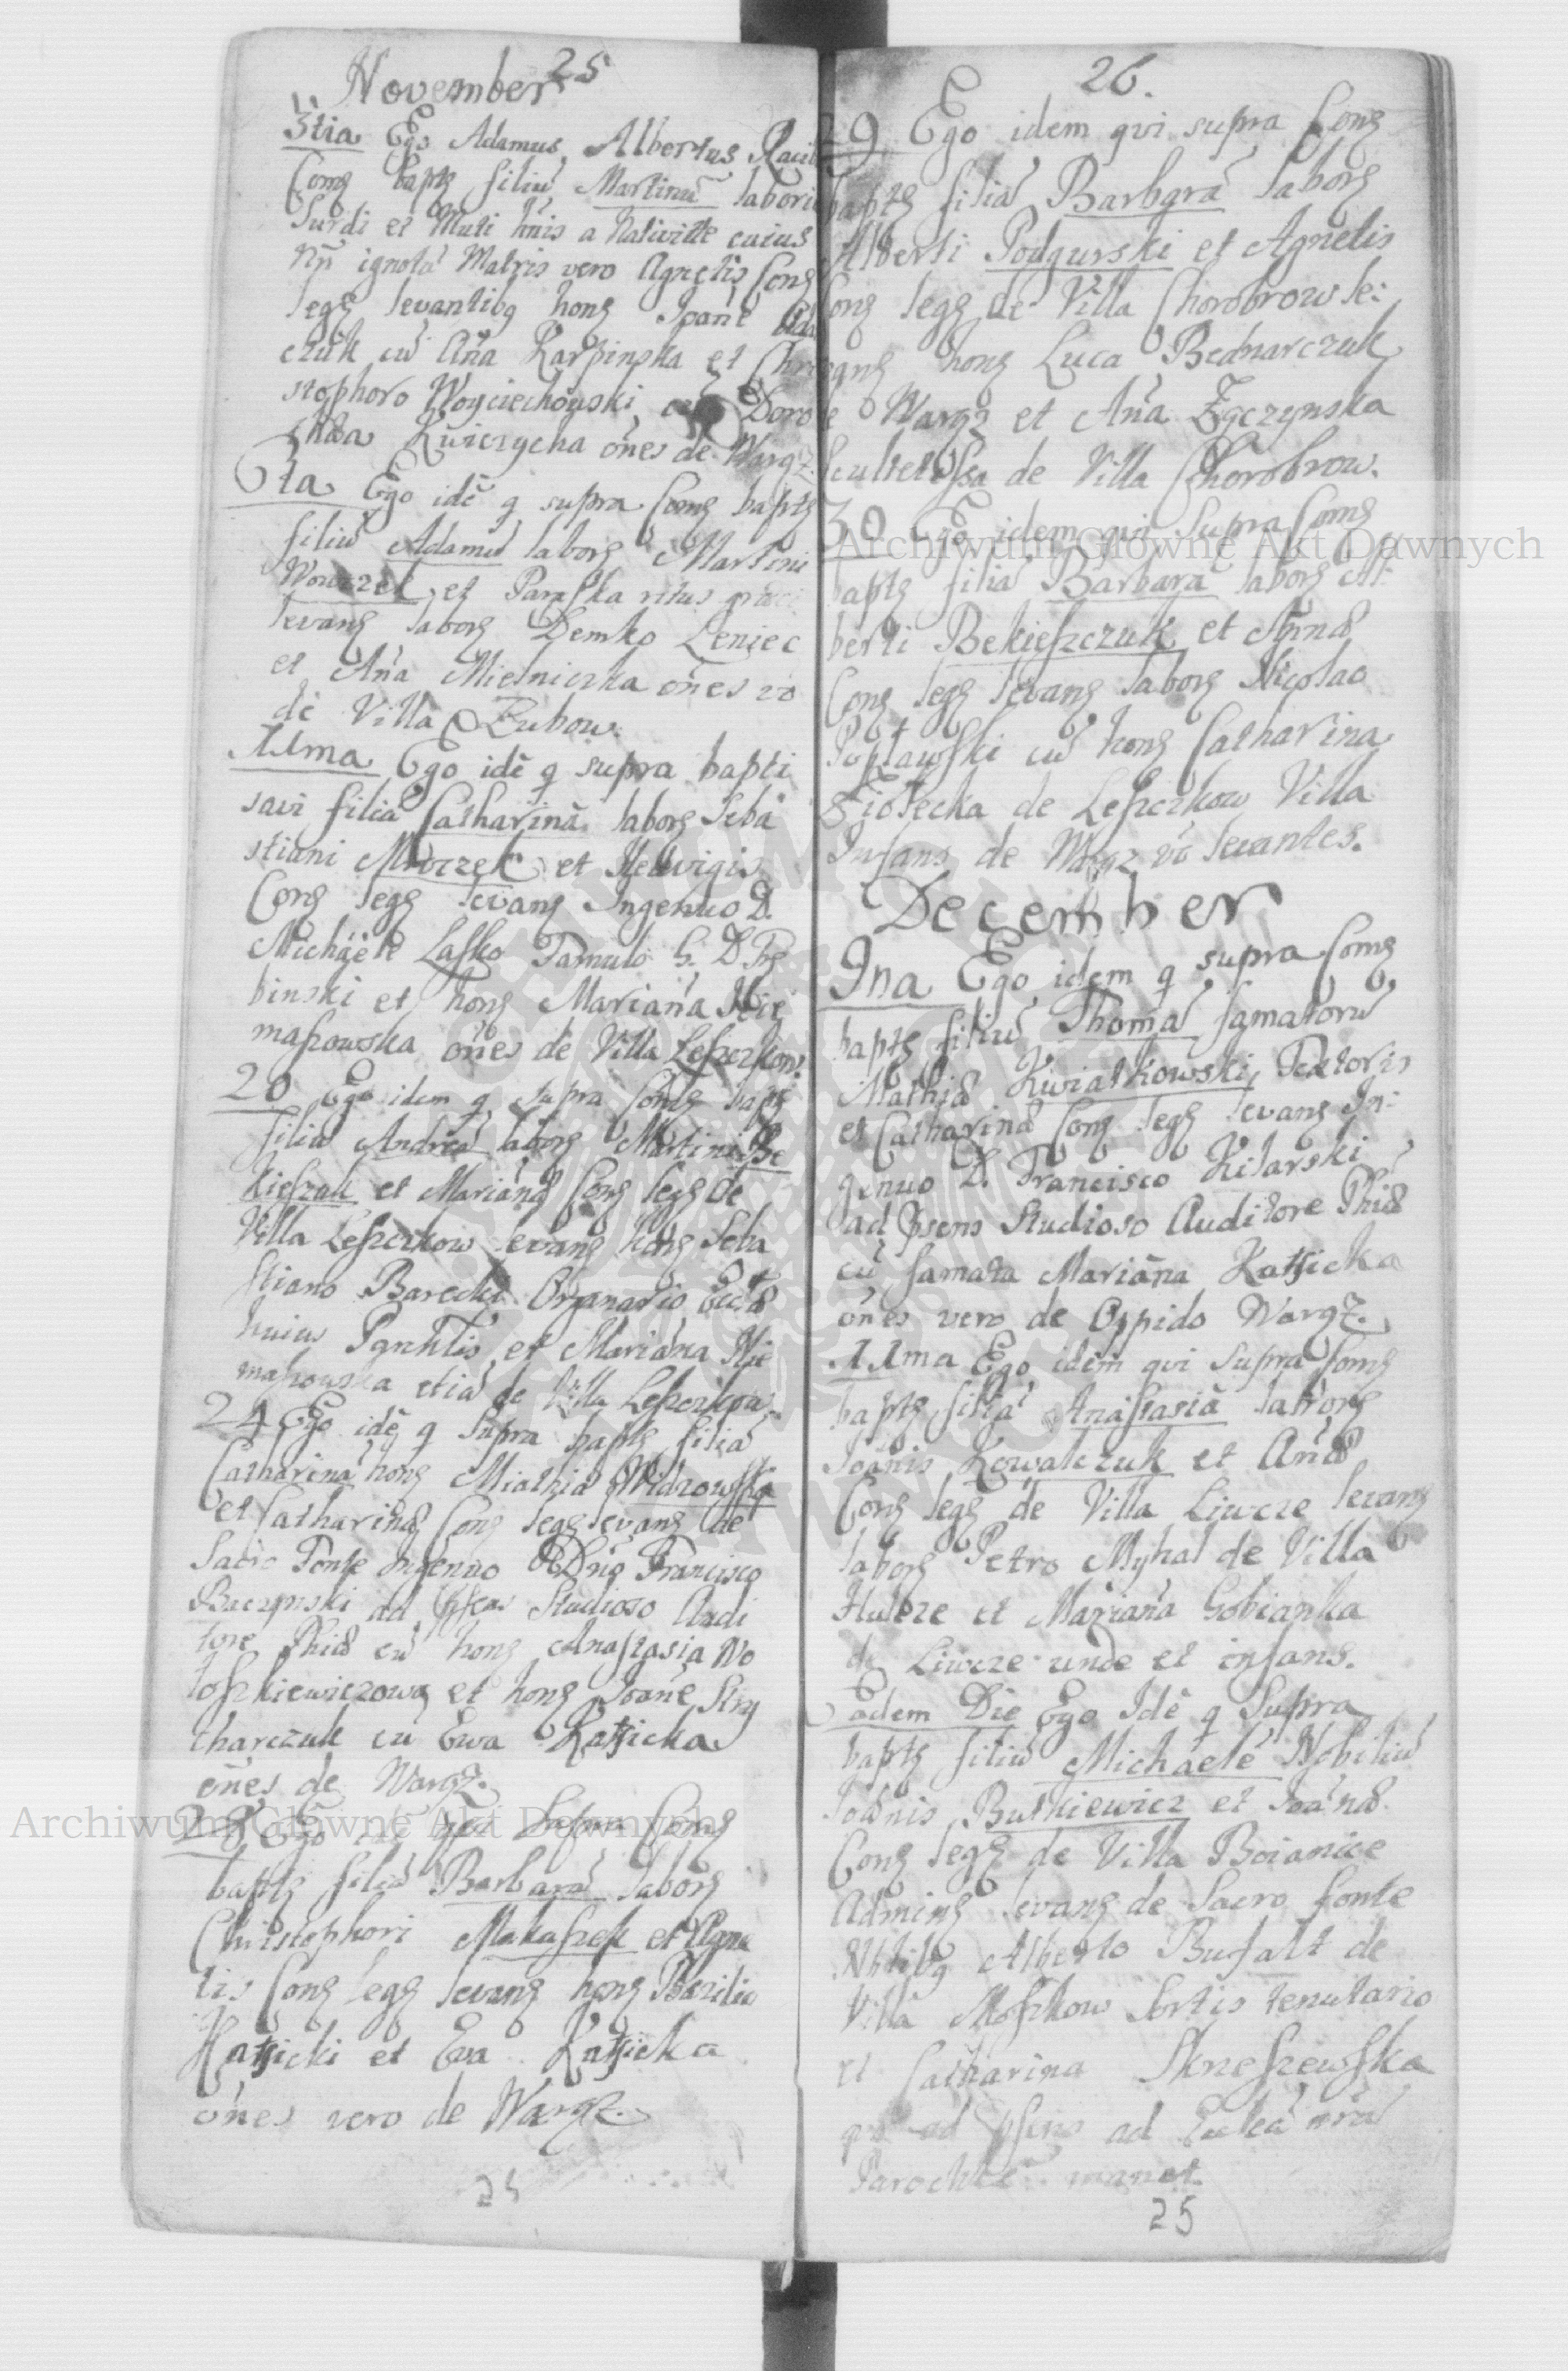 November 25
3tia Ego Adamus Albertus
Comg baptg filiu Martinu
Surdi et Muti a Nativitte cuius
ignota Matris vero Agnetis Cong
legg levantibg hong Joane
czuk cu Ana Karpinska et Chri
stophoro Woyciechowski Doro
thea ones de Wargz.
6ta Ego ide q supra Comg baptg
filiu Adamu laborg Martini
et Paraska ritus
levang laborg Demko Leniec
et Ana Mielniczka ones vo
de Villa Zubow.
11ma Ego ide q supra bapti
savi filia Catharina laborg Seba
stiani Mroczek et Hedvigis
Cong legg levang Ingenuo D.
Michaele Lasko Famulo G. D.
binski et hong Mariana
maszowska ones de Villa Leszczkow.
20 Ego idem q supra Comg baptg
filiu Andrea laborg Martini Be
kieszak et Mariana Cong legg de
Villa Leszczkow levang hong Seba
stiano Barecki Organario
huius et Mariana
maszowska etia de Villa Leszczkow.
24 Ego ide q Supra baptg filia
Catharina hong Mathia
et Catharina Cong legg levang de
Sacro Fonte Ingenuo Francisco
Baczynski ad Studioso Audi
tore cu hong Anastasia Wo
toszkiewiczowa et hong Joane
tharczuk cu Ewa Katsicka
ones de Wargz.
28 Ego Supra Comg
baptg filia Barbara laborg
Christophori Makaszek et Agne
tis Cong legg levang hong Bazilio
Katsicki et Eva Katsicka
ones vero de Wargz.
25
26.
29 Ego idem qvi supra Comg
baptg filia Barbara laborg
Alberti Podgurski et Agnetis
Cong legg de Villa Chorobrow le:
vang hong Luca Bednarczuk
de Wargz et Ana
Scultetissa de Villa Chorobrow.
30 Ego idem qvi Supra Comg
baptg filia Barbara laborg Al:
berti Bekieszczuk et Anna
Cong legg levang laborg Nicolao
Poptawski cu hong Catharina
de Leszczkow Villa
Infans de Wargz vo levantes.
December
9na Ego idem q supra Comg
baptg filiu Thoma famatoru
Mathia Kwiatkowski
et Catharina Cong legg levang In:
genuo D. Francisco Kitarski
ad psens Studioso Auditore
cu famata Mariana Katsicka
ones vero de Oppido Wargz.
11ma Ego idem qvi supra Comg
baptg filia Anastasia laborg
Joanis Kowalczuk et Ana
Cong legg de Villa Liwcze levang
laborg Petro Myhal de Villa
Hulcze et Mariana Gobianka
de Liwcze unde et infans.
eadem Die Ego Ide q Supra
baptg filiu Michaele Nobiliu
Joanis Butkiewicz et Joana
Cong legg de Villa Boianice
Adming levang de Sacro fonte
Alberto Bufalt de
Villa Moszkow Sortis tenutario
et Catharina
ad psens ad
manet
25